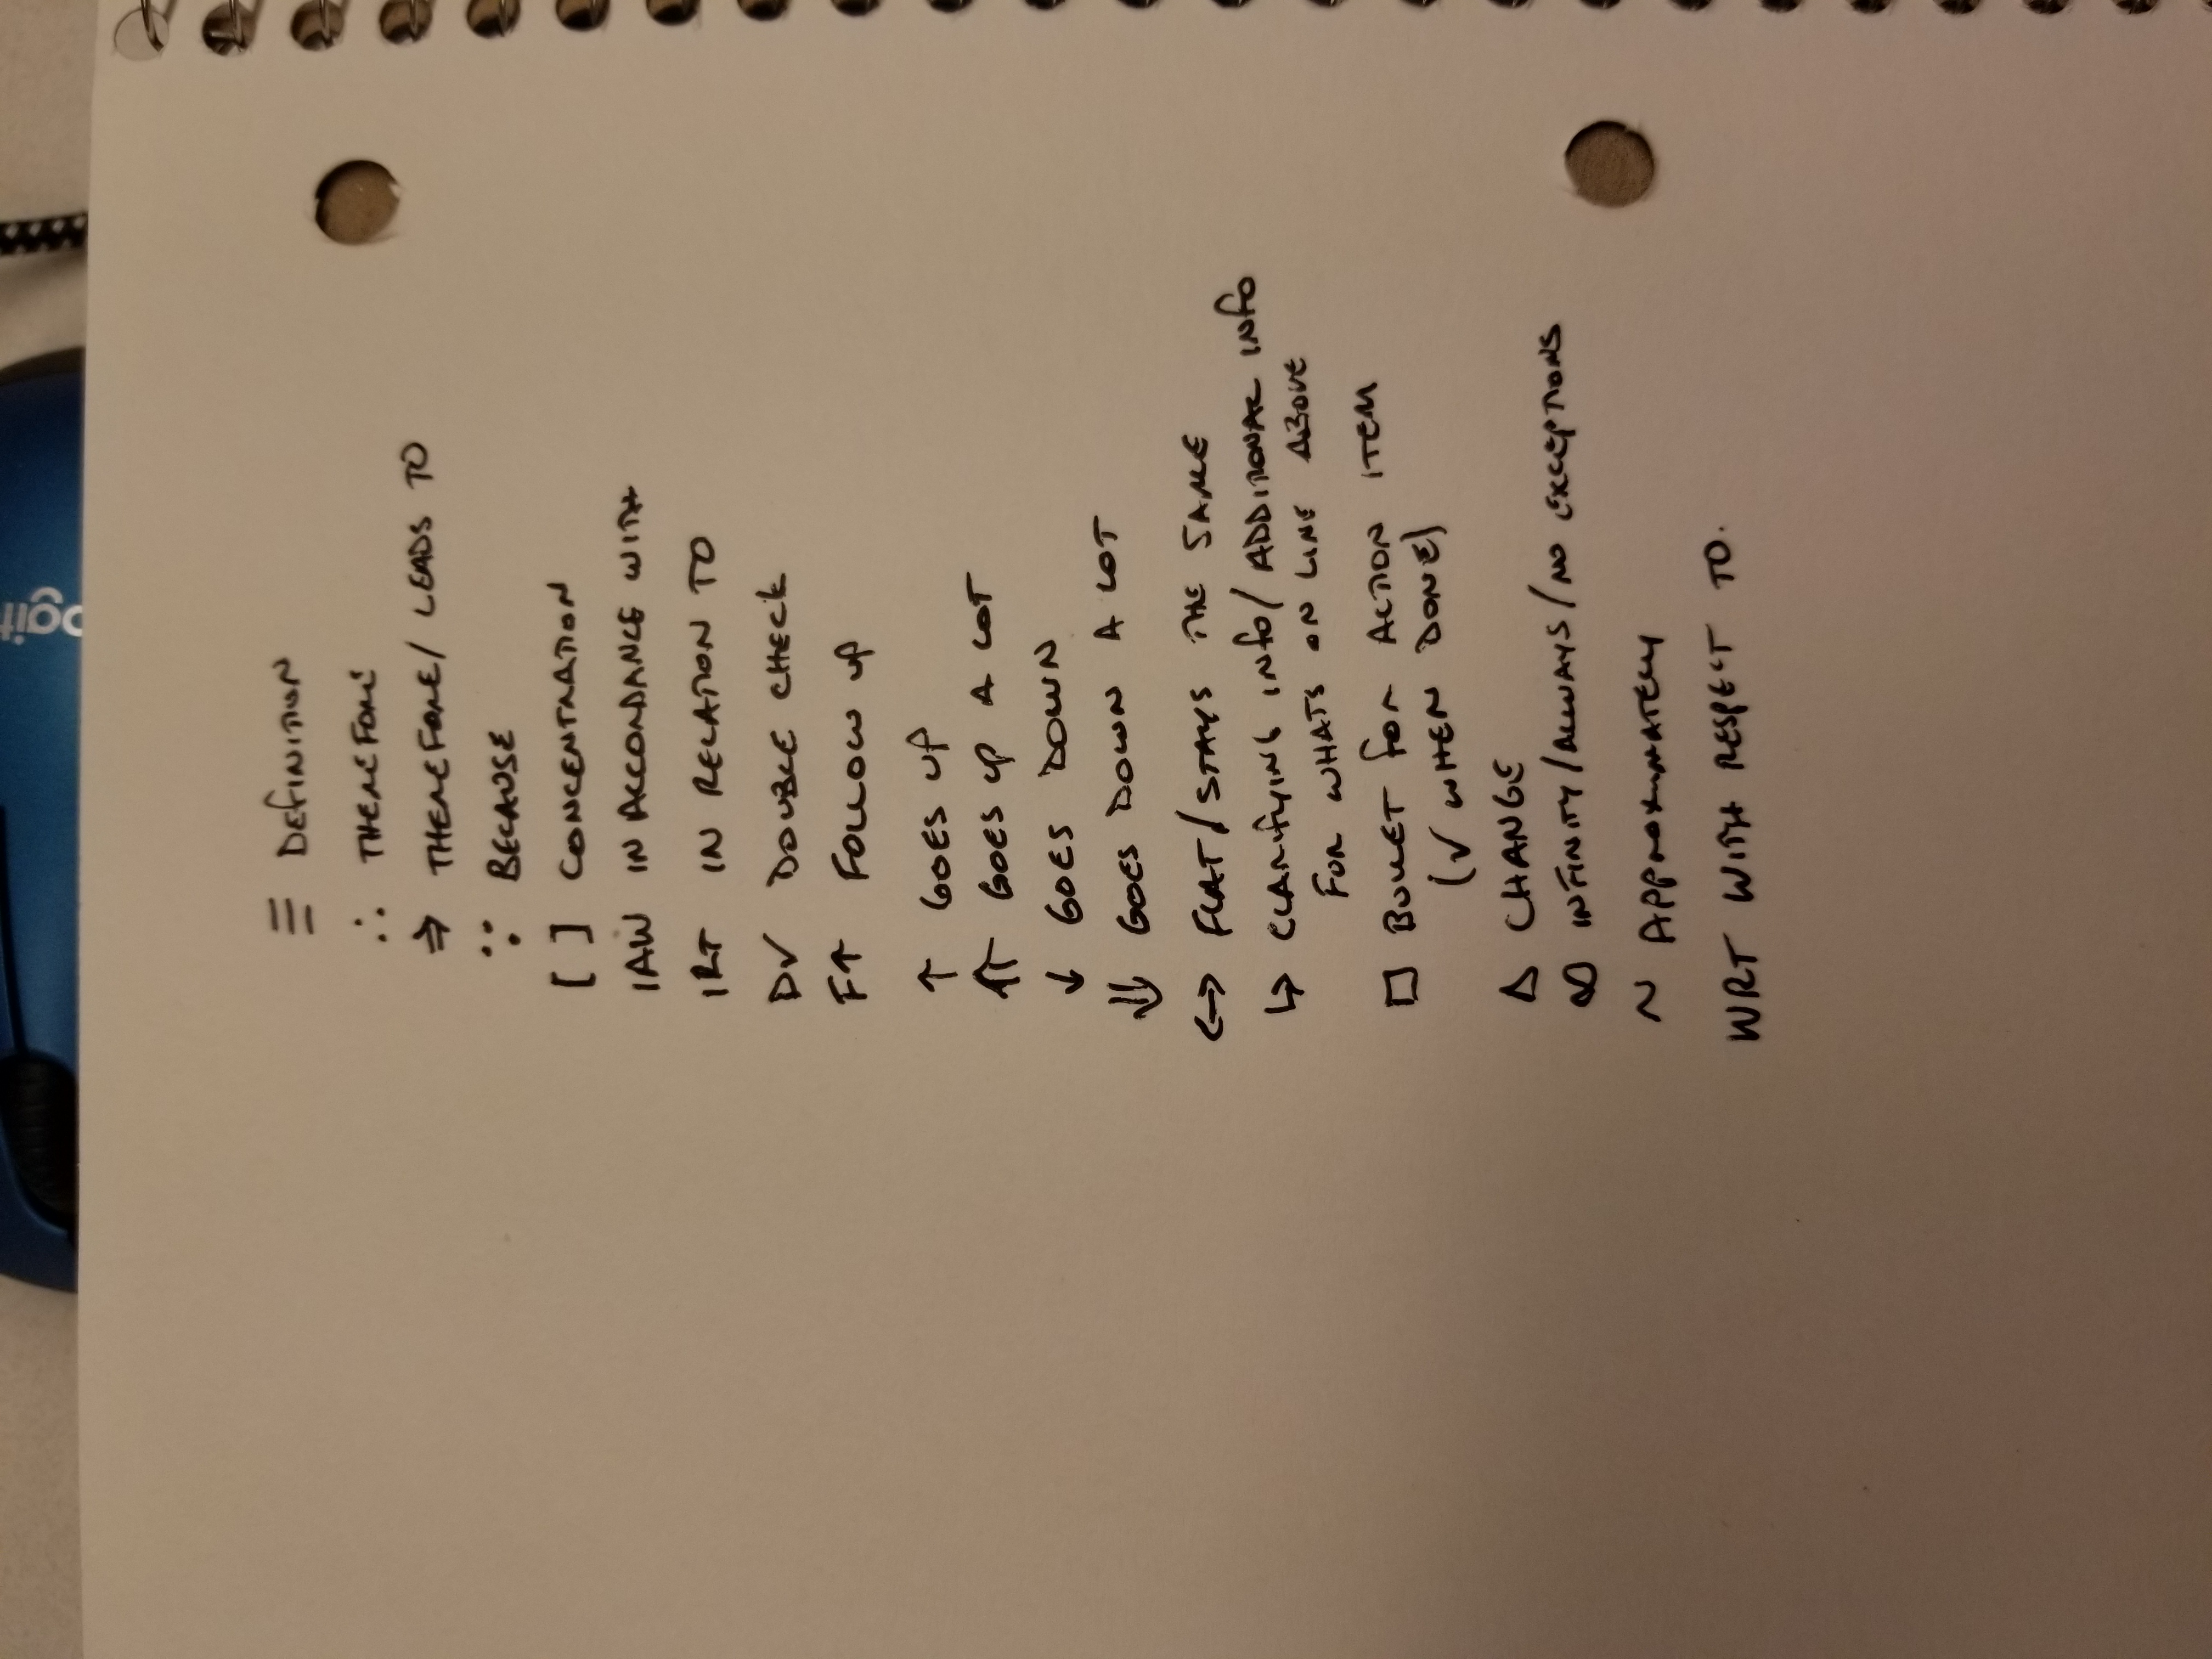 ≡ DEFINITION
∴ THEREFORE
⇒ THEREFORE/ LEADS TO
∵ BECAUSE
[ ] CONCENTRATION
IAW IN ACCORDANCE WITH
IRT IN RELATION TO
D✓ DOUBLE CHECK
F↑ FOLLOW UP
↑ GOES UP
⇑ GOES UP A LOT
↓ GOES DOWN
⇓ GOES DOWN A LOT
↔ FLAT/STAYS THE SAME
↳ CLARIFYING INFO/ADDITIONAL INFO
FOR WHATS ON LINE ABOVE
□ BULLET FOR ACTION ITEM
(✓ WHEN DONE)
Δ CHANGE
∞ INFINITY/ALWAYS/NO EXCEPTIONS
~ APPROXIMATELY
WRT WITH RESPECT TO.